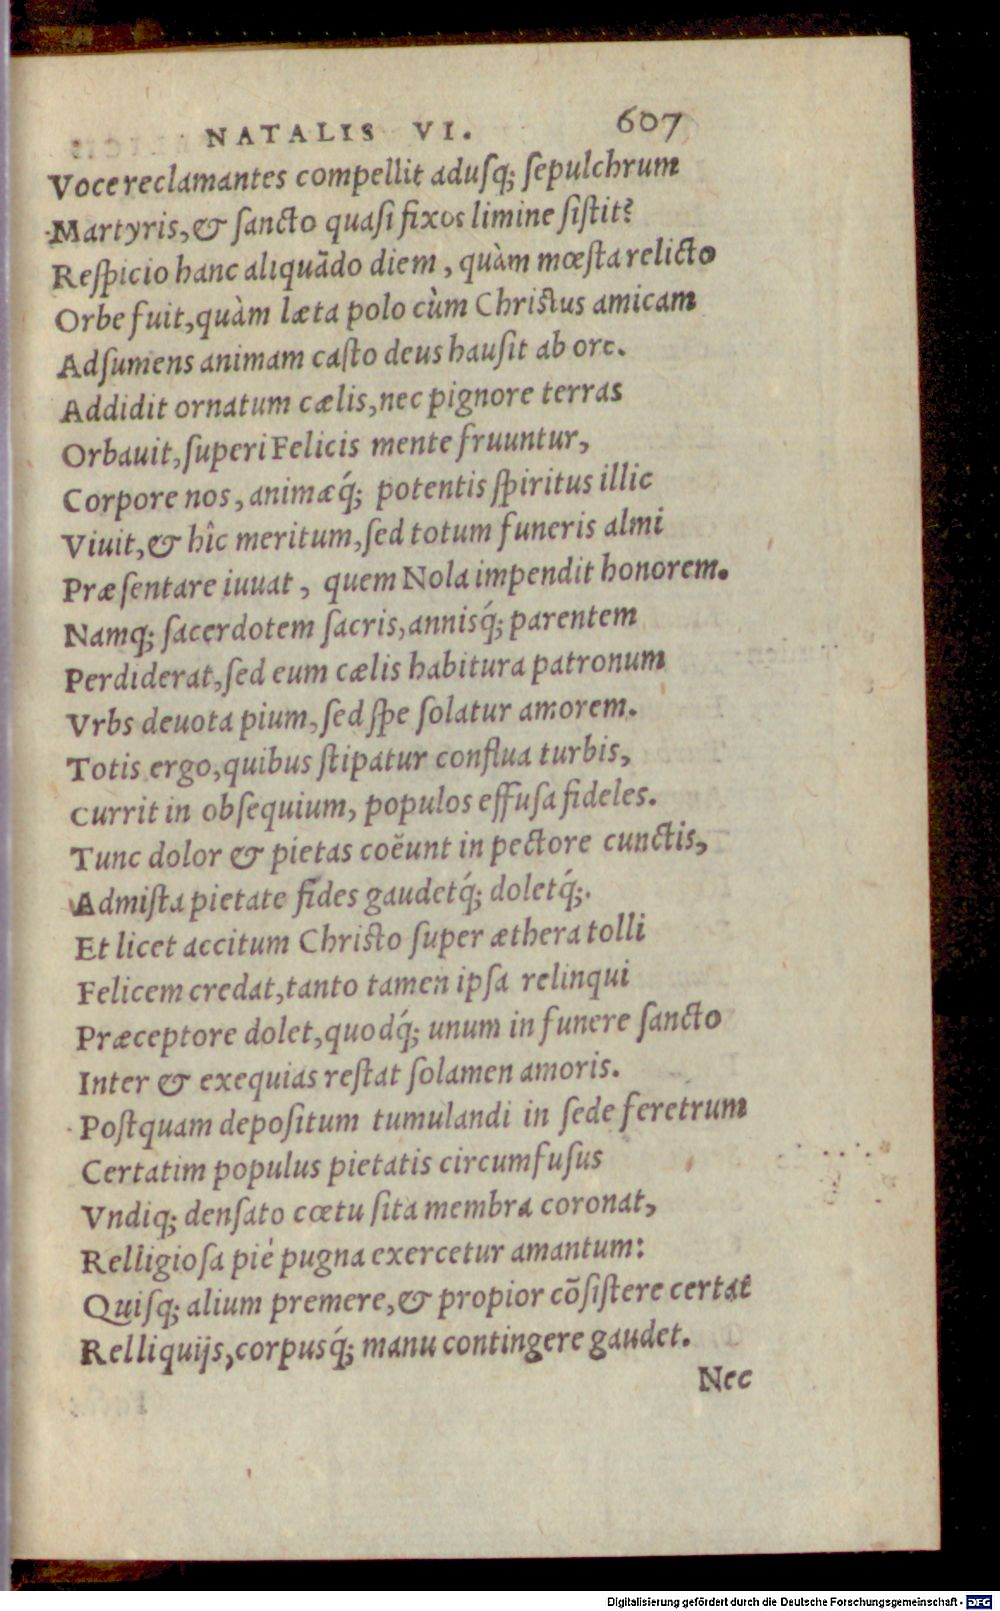 NATALIS VI. 607
Voce reclamantes compellit adusq; sepulchrum
Martyris, & sancto quasi fixos limine sistit?
Respicio hanc aliquãdo diem, quàm mœsta relicto
Orbe fuit, quàm læta polo cùm Christus amicam
Adsumens animam casto deus hausit ab ore.
Addidit ornatum cælis, nec pignore terras
Orbauit, superi Felicis mente fruuntur,
Corpore nos, animæq́; potentis spiritus illic
Viuit, & hîc meritum, sed totum funeris almi
Præsentare iuuat, quem Nola impendit honorem.
Namq; sacerdotem sacris, annisq́; parentem
Perdiderat, sed eum cælis habitura patronum
Vrbs deuota pium, sed spe solatur amorem.
Totis ergo, quibus stipatur conflua turbis,
Currit in obsequium, populos effusa fideles.
Tunc dolor & pietas coëunt in pectore cunctis,
Admista pietate fides gaudetq́; doletq́;.
Et licet accitum Christo super æthera tolli
Felicem credat, tanto tamen ipsa relinqui
Præceptore dolet, quodq́; unum in funere sancto
Inter & exequias restat solamen amoris.
Postquam depositum tumulandi in sede feretrum
Certatim populus pietatis circumfusus
Vndiq; densato cœtu sita membra coronat,
Relligiosa piè pugna exercetur amantum:
Quisq; alium premere, & propior cõsistere certat
Relliquijs, corpusq́; manu contingere gaudet.
Nec
Digitalisierung gefördert durch die Deutsche Forschungsgemeinschaft - DFG